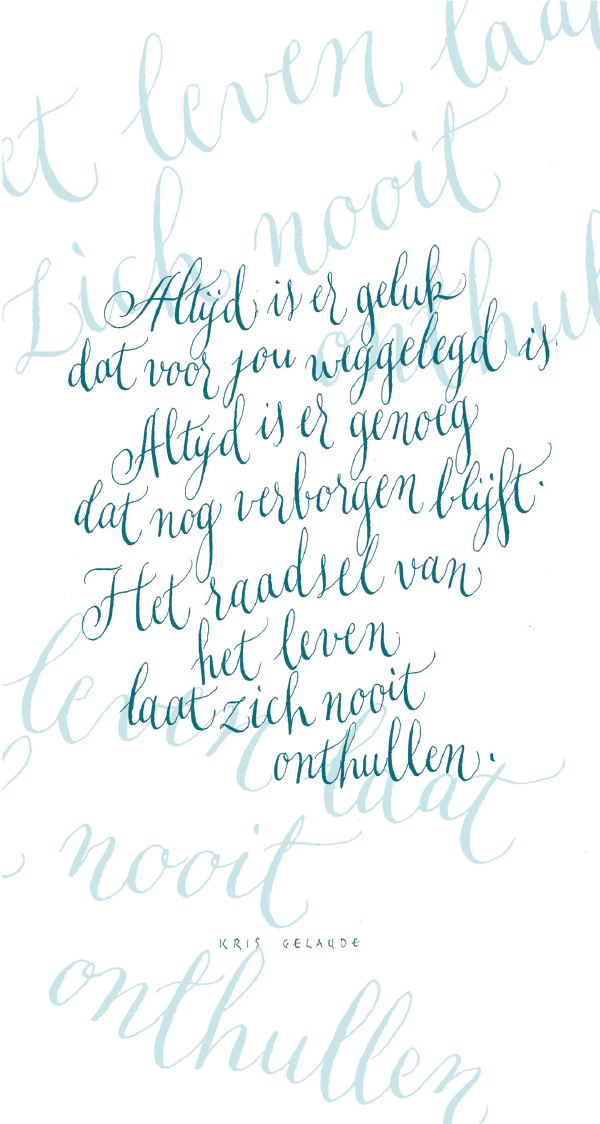 et leven laat
zich nooit
onthul
Altijd is er geluk
dat voor jou weggelegd is.
Altijd is er genoeg
dat nog verborgen blijft.
Het raadsel van
het leven
laat zich nooit
onthullen.
leven laat
nooit
KRIS GELAUDE
onthullen